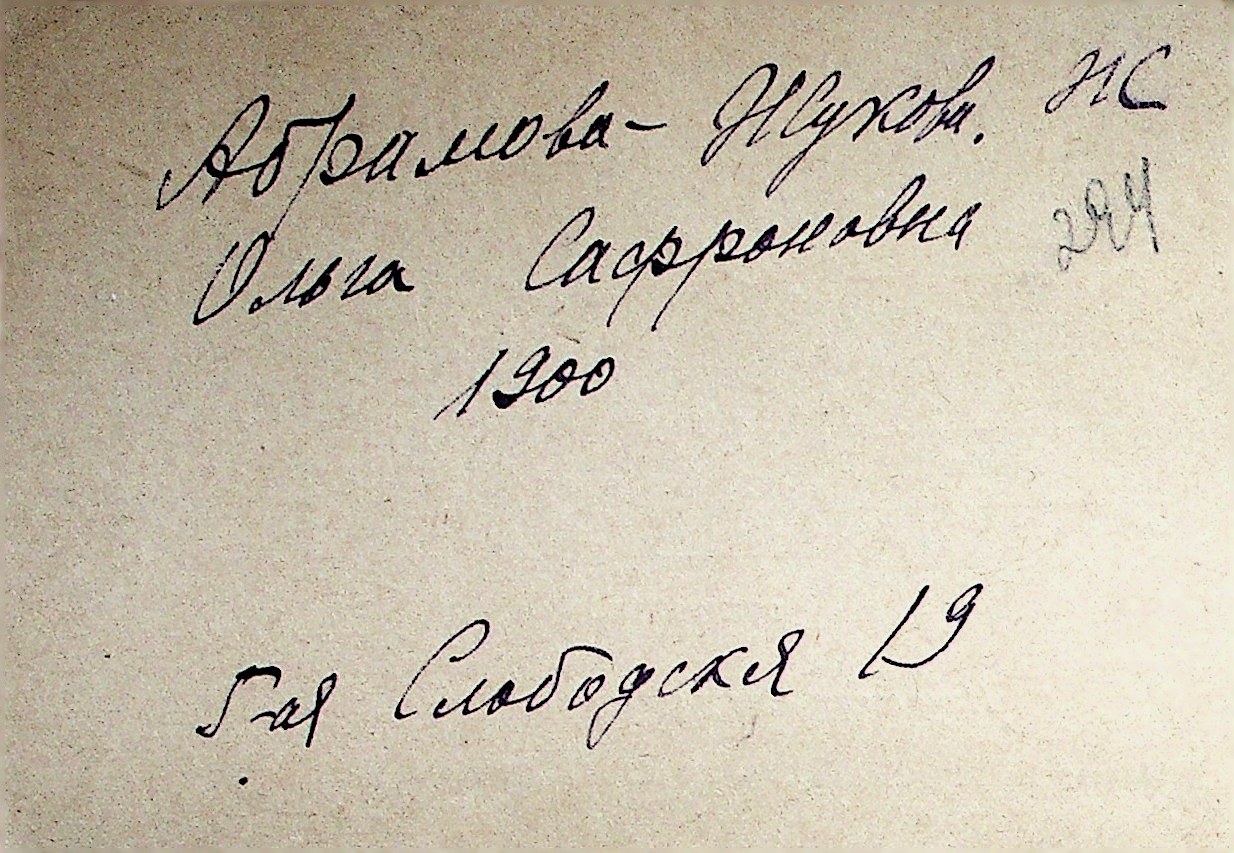 Абрамова-Жукова. НС
Ольга Сафроновна
1900
5-ая Слободская 19